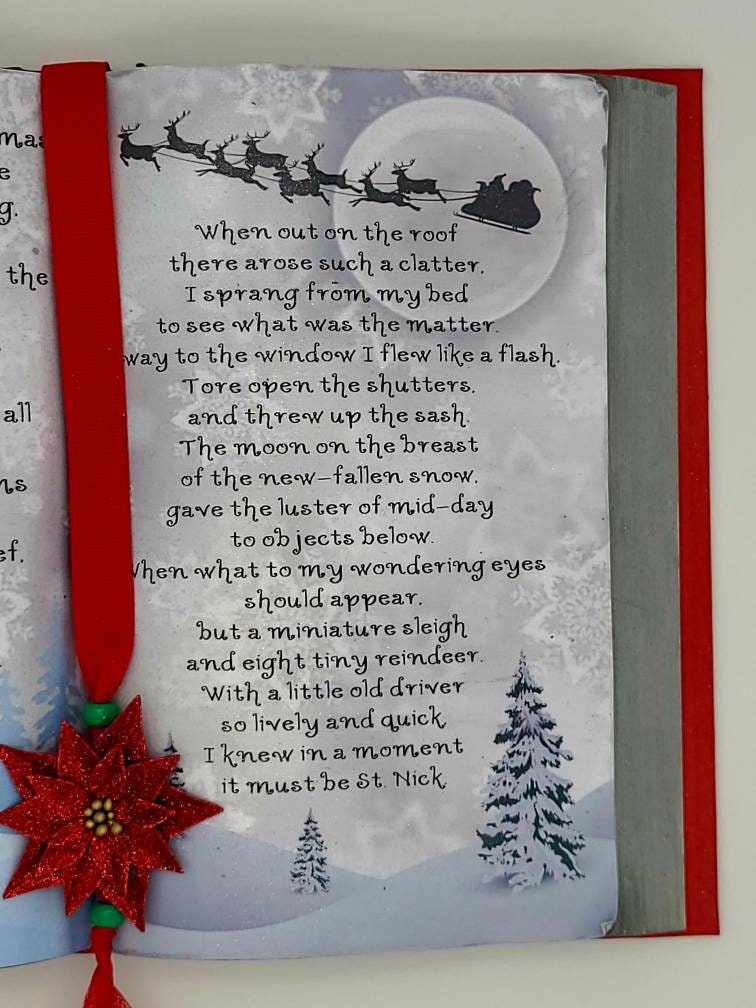 mas
e
g.
the
all
ns
ef.
When out on the roof
there arose such a clatter,
I sprang from my bed
to see what was the matter.
way to the window I flew like a flash,
Tore open the shutters,
and threw up the sash.
The moon on the breast
of the new-fallen snow,
gave the luster of mid-day
to objects below.
When what to my wondering eyes
should appear,
but a miniature sleigh
and eight tiny reindeer.
With a little old driver
so lively and quick,
I knew in a moment
it must be St. Nick.